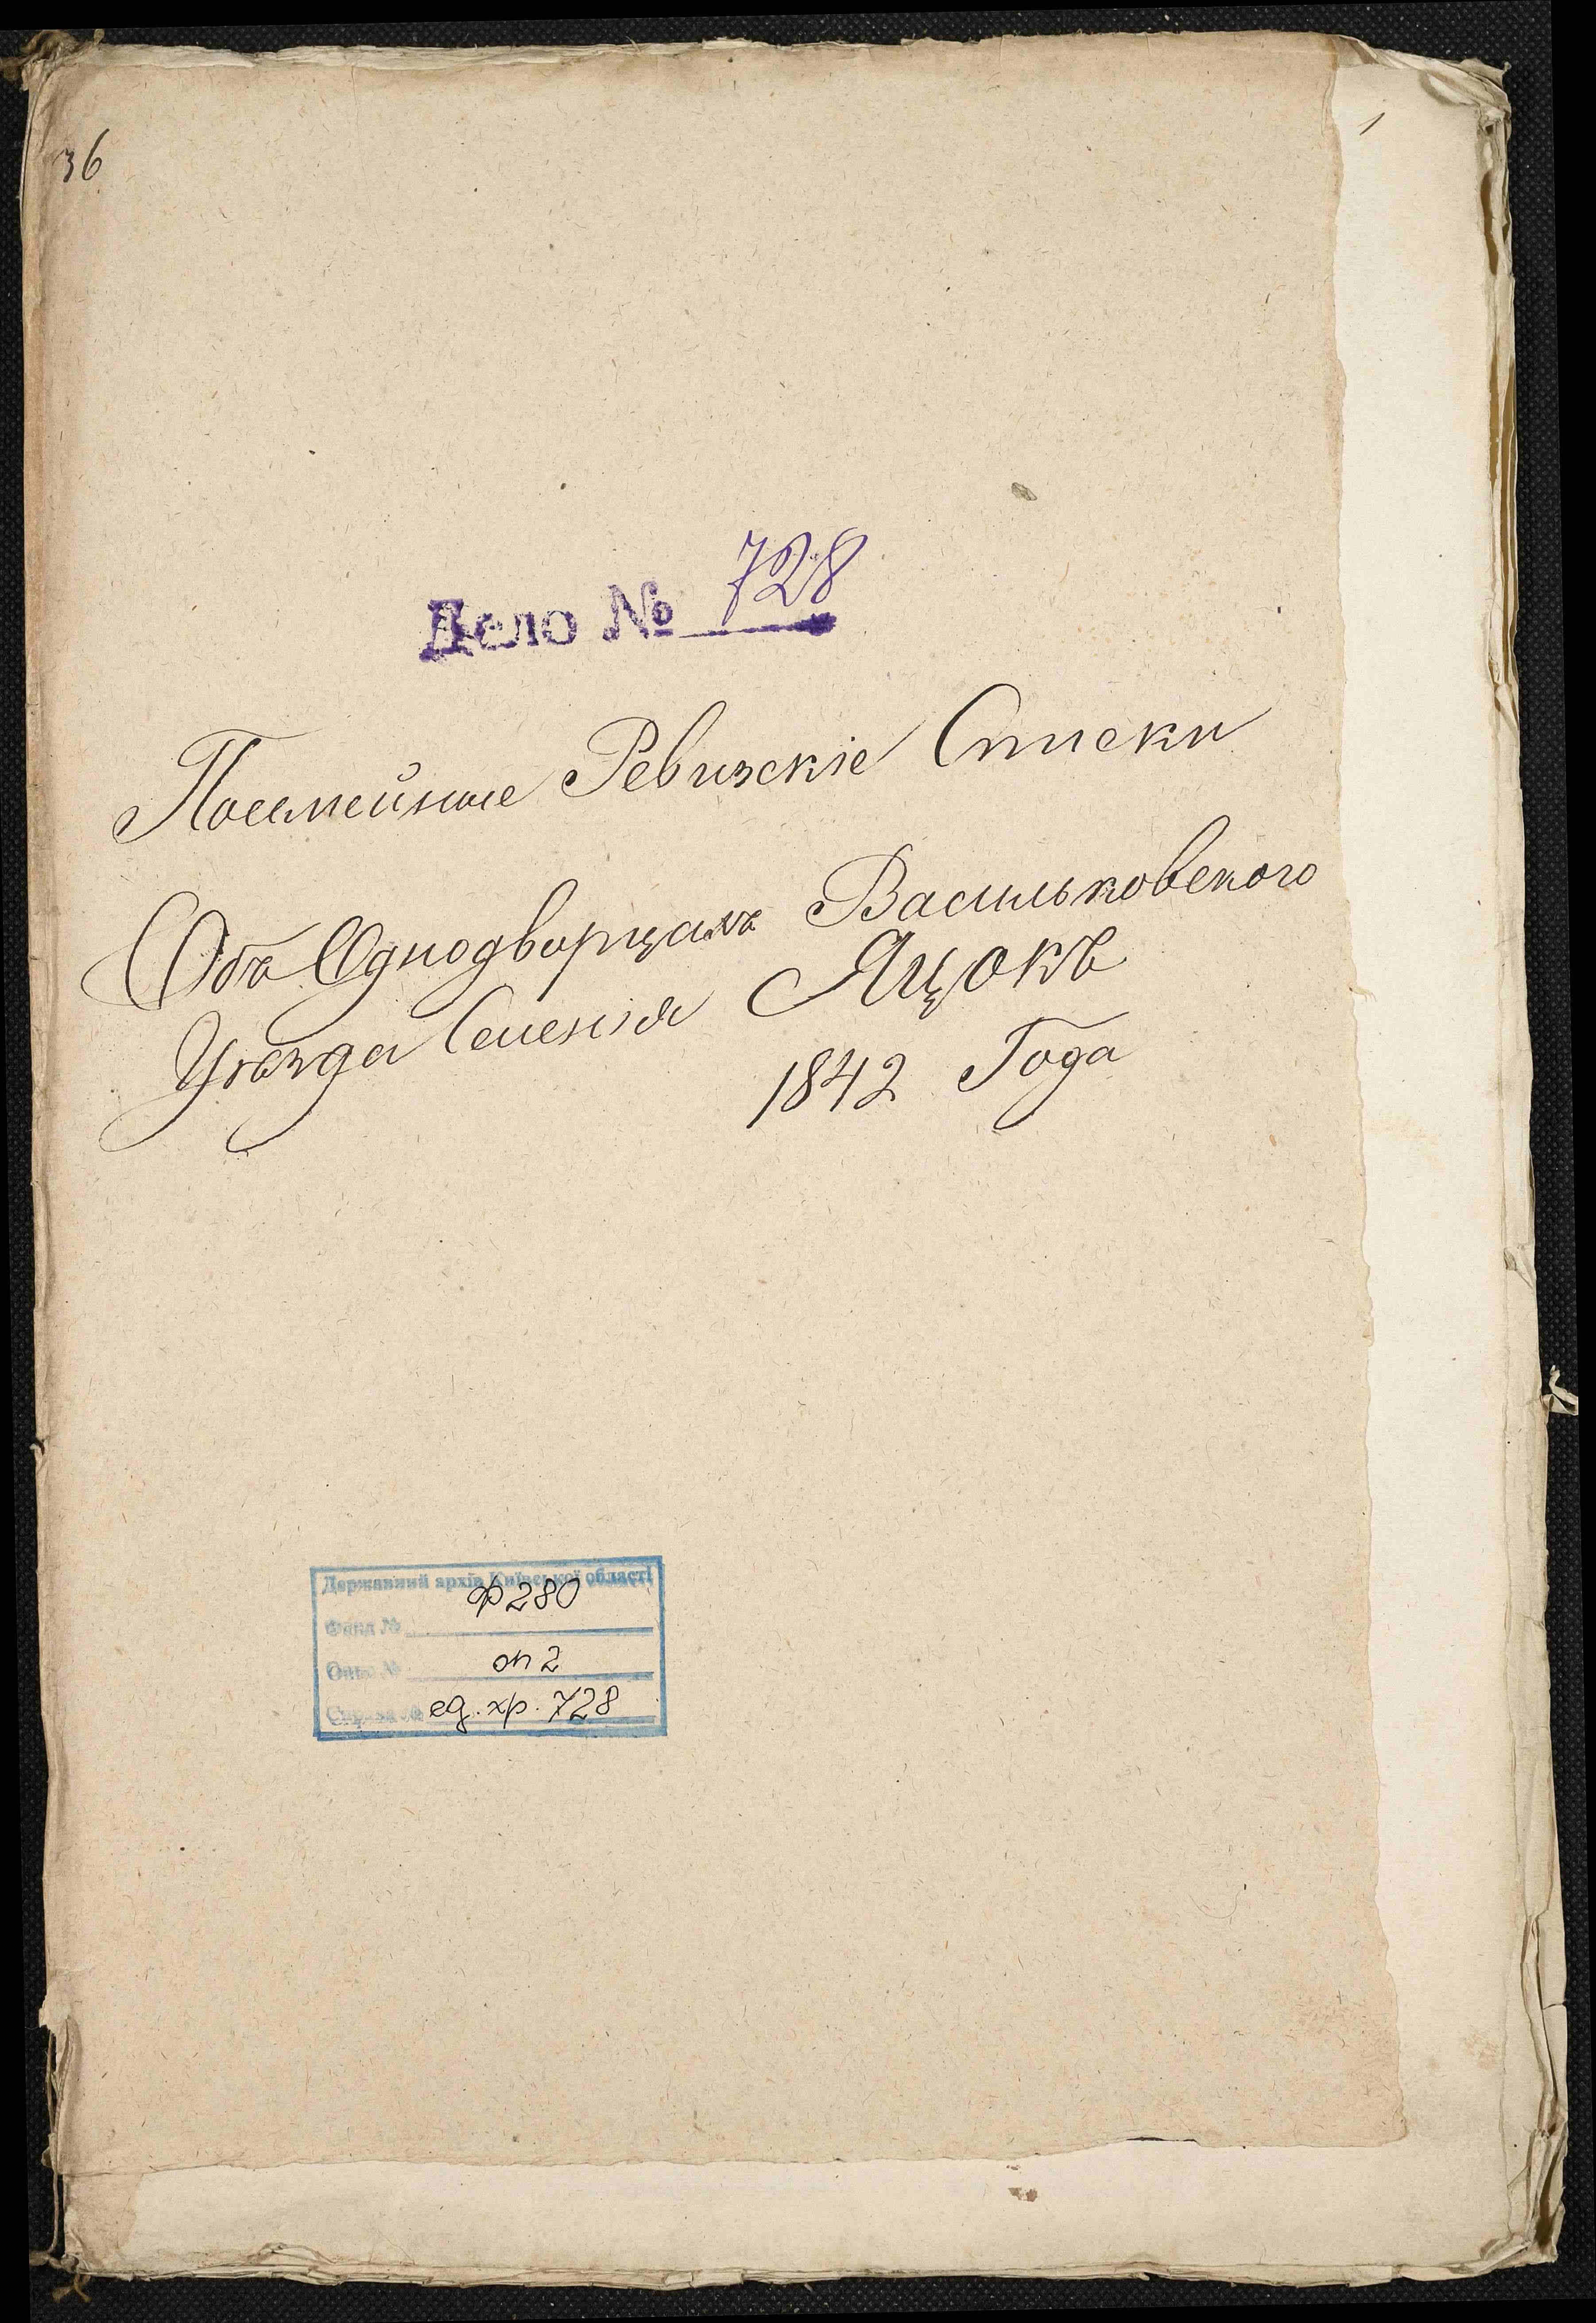 36
1
Дело № 728
Посемейные Ревизскіе Списки
Объ Однодворцахъ Васильковского
Уѣзда Селенія Яцокъ
1842 Года
Державний архів Київської області
Фонд № ф 280
Опис № оп 2
Справа № ед. хр. 728